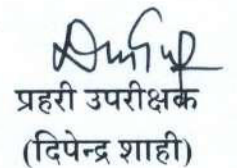 प्रहरी उपरीक्षक
(दिपेन्द्र शाही)